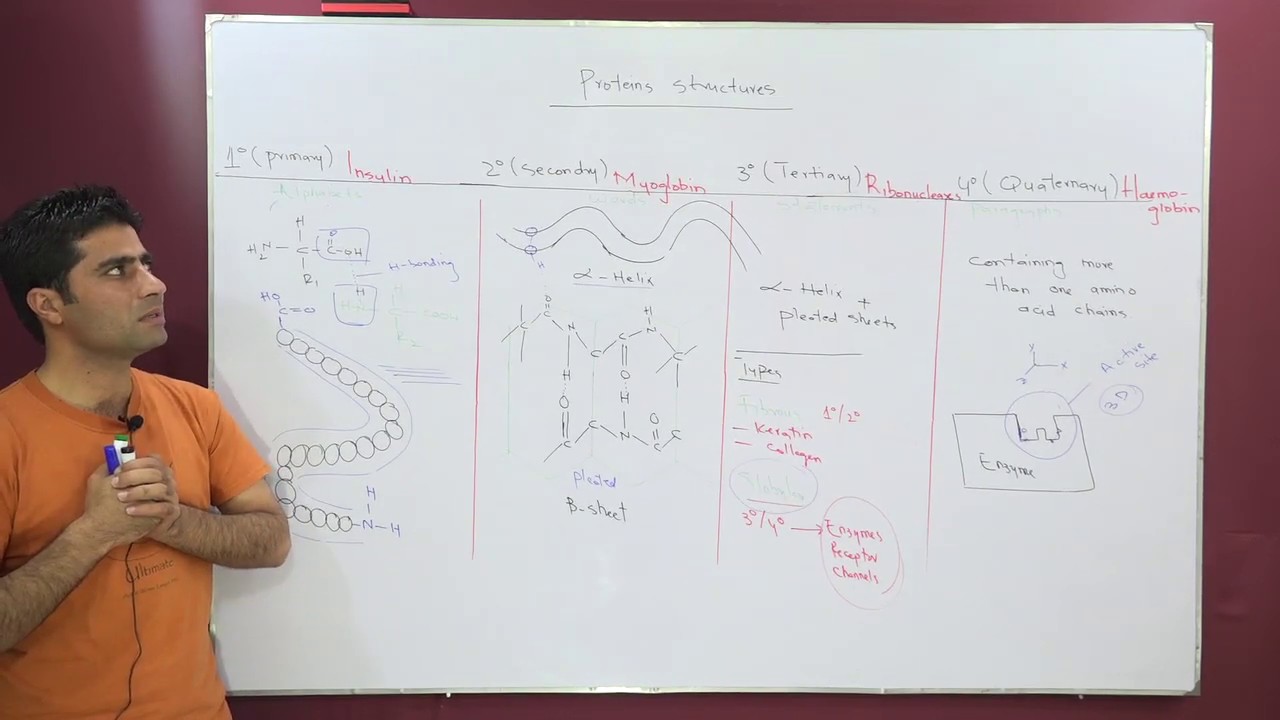 Proteins structures
1° (primary) Insulin
Alphabets
H
H2N - C - C - OH
O
R1
H-bonding
H
H
COOH
R2
HO
C=O
H
N-H
2° (Secondry) Myoglobin
words
H
α-Helix
O
C
N
C
C
O
N
H
C
H
O
C
C
O
H
N
O
C
C
C
pleated
B-sheet
3° (Tertiary) Ribonucleases
α-Helix +
pleated sheets
Types
Fibrous 1°/2°
- Keratin
- Collagen
Globular
3°/4° → Enzymes
Receptor
Channels
4° (Quaternary) Haemo-
globin
paragraphs
Containing more
than one amino
acid chains
y
x
z
Active
site
3D
Enzyme